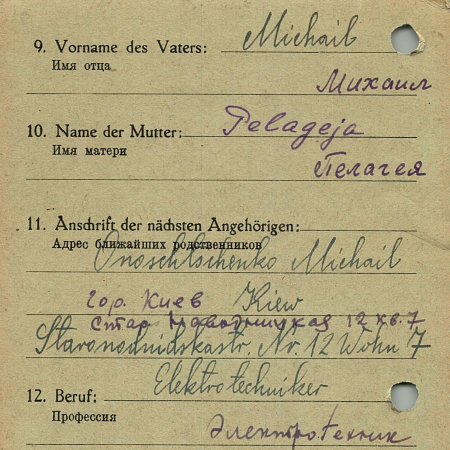 9. Vorname des Vaters: Michail
Имя отца
Михаил
10. Name der Mutter: Pelageja
Имя матери
Пелагея
11. Anschrift der nächsten Angehörigen:
Адрес ближайших родственников
Onoschtschenko Michail
гор. Киев Kiew
Стар Наводницкая 12 кв. 7
Staronodnidskastr. Nr. 12 Wohn 7
12. Beruf: Elektrotechniker
Профессия
Электротехник